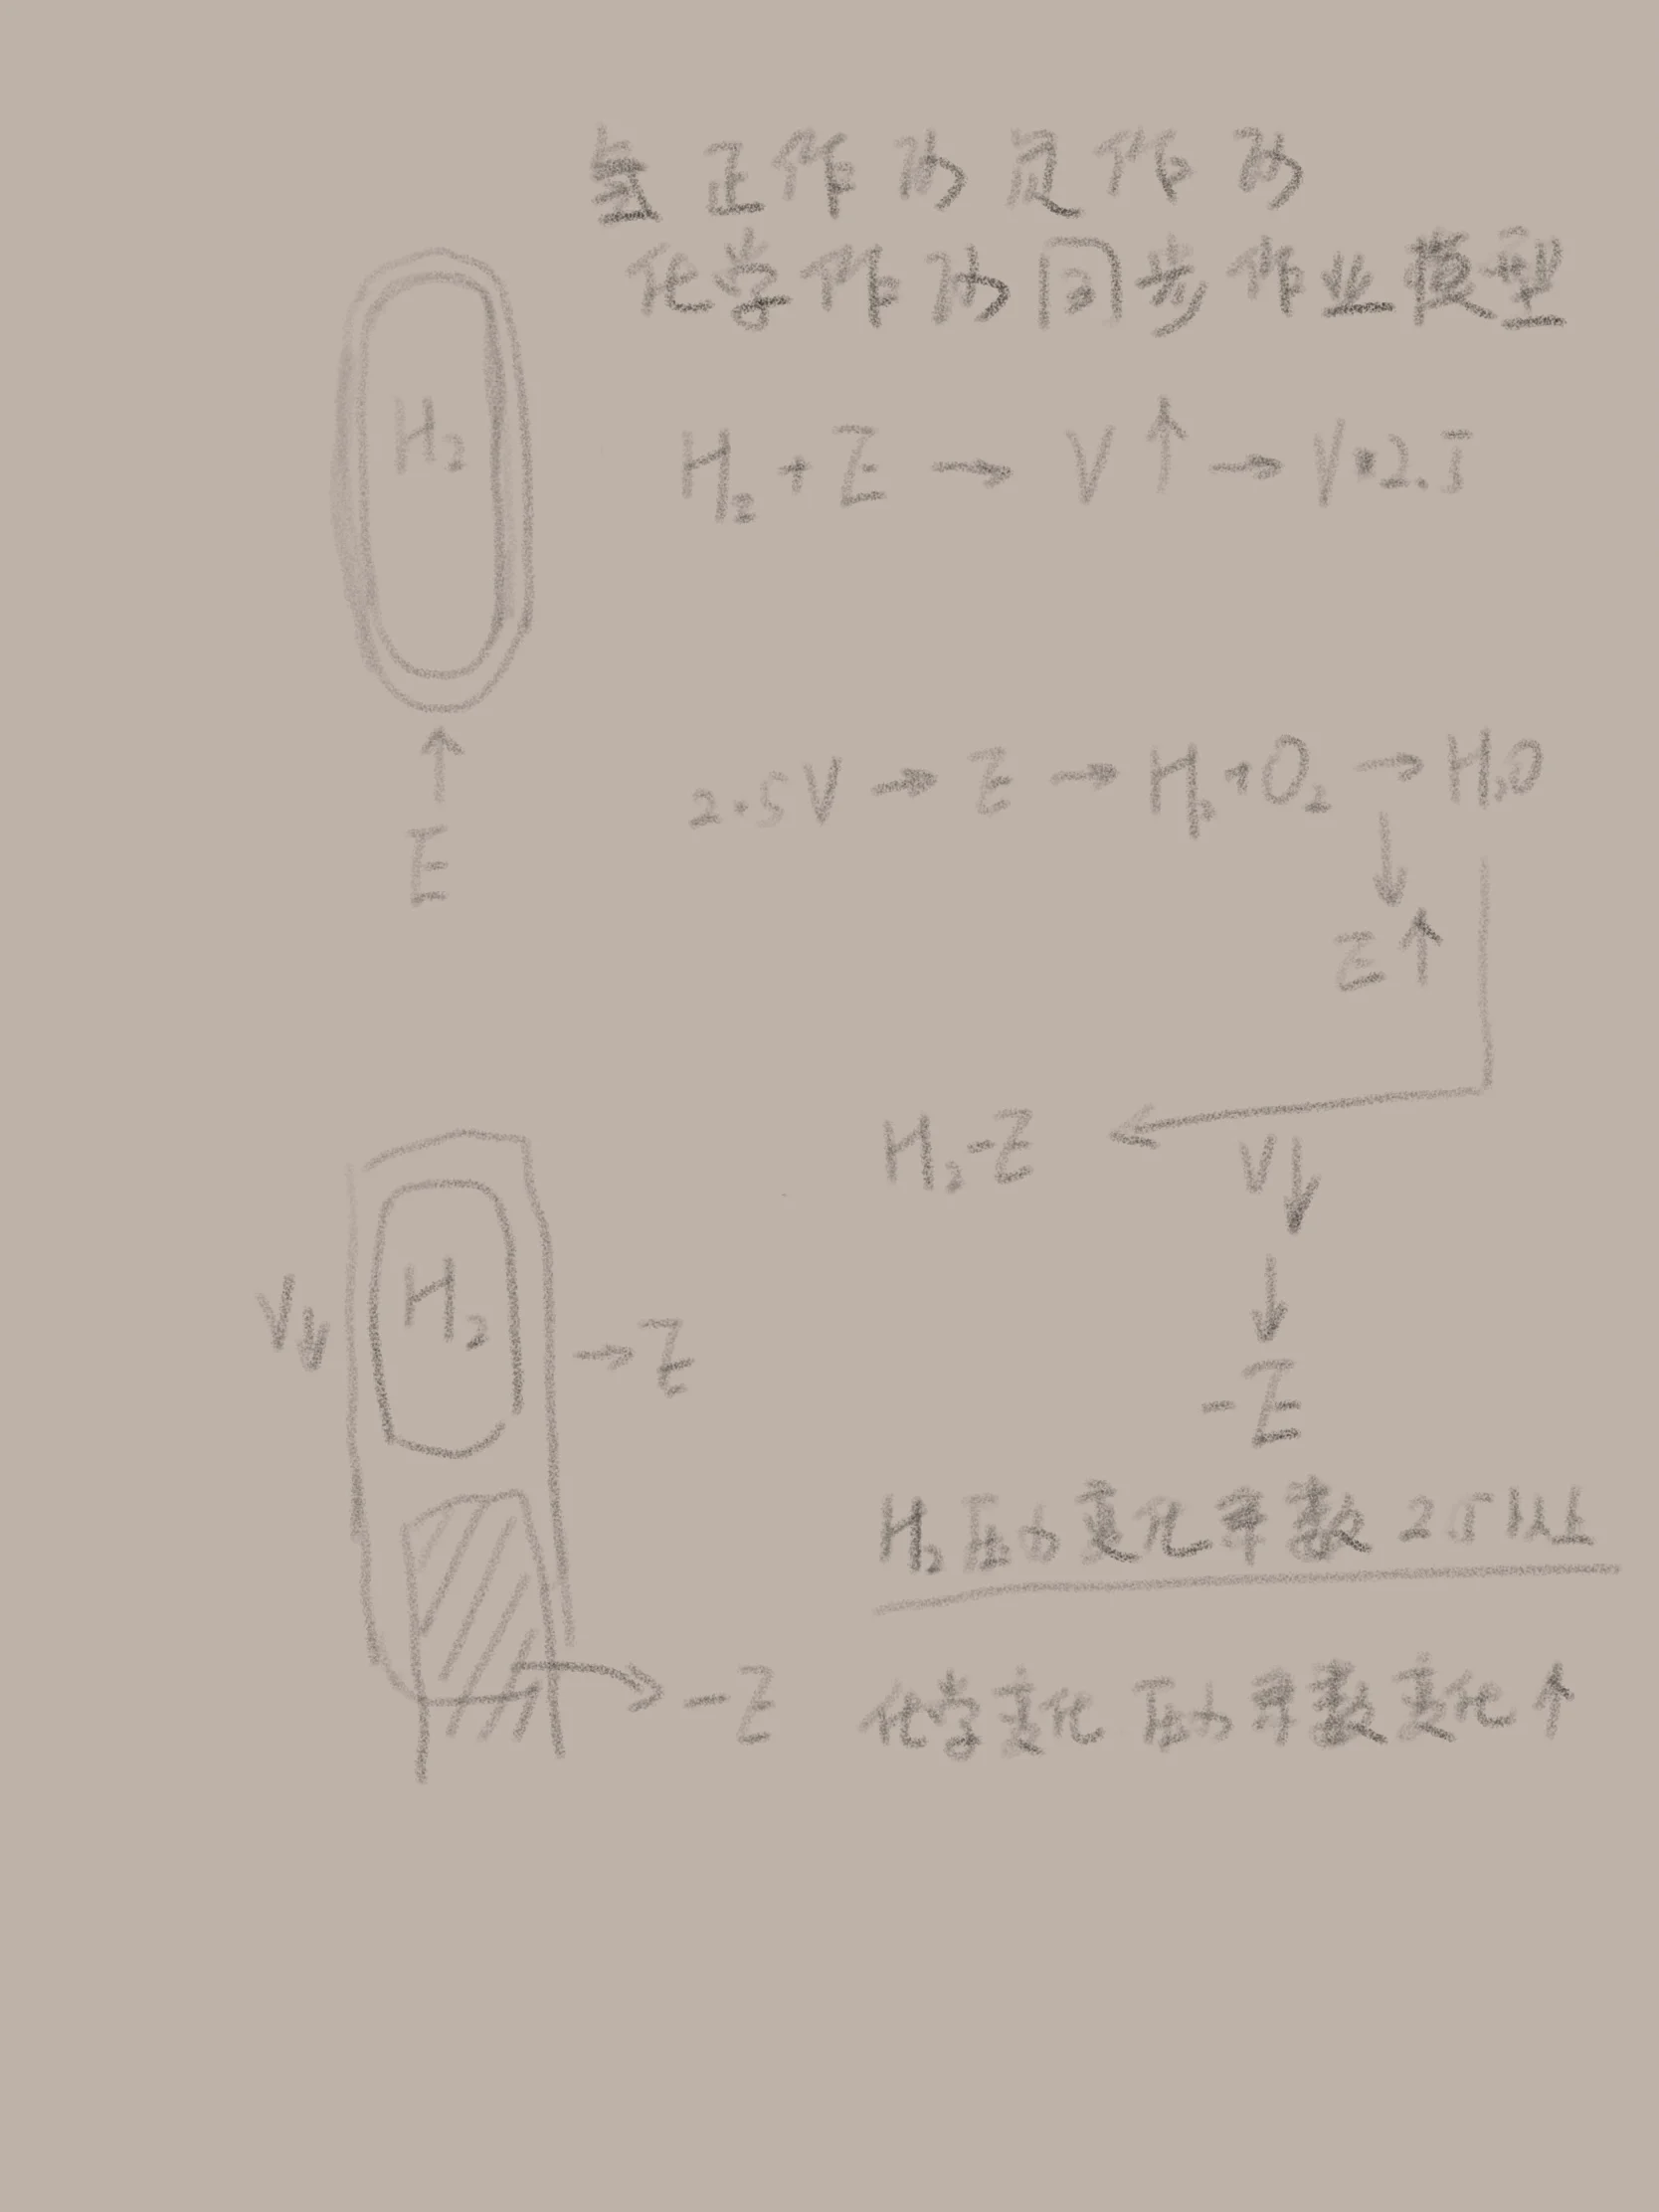 氢正作功负作功
化学作功同步作业模型
H₂
H₂+E → V↑ → V*2.5
E
2.5V → E → H₂+O₂ → H₂O
E↑
H₂-E
V↓
-E
V↓
H₂
→E
H₂压力变化系数 2.5以上
-E
化学变化 压力系数变化↑